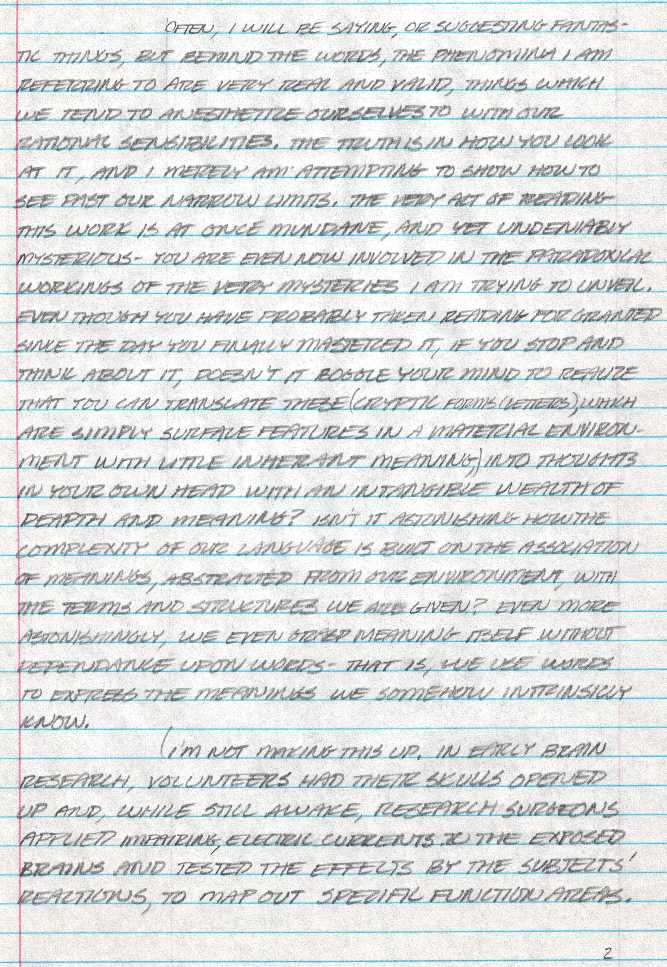 OFTEN, I WILL BE SAYING, OR SUGGESTING FANTAS-
TIC THINGS, BUT BEHIND THE WORDS, THE PHENOMINA I AM
REFERRING TO ARE VERY REAL AND VALID, THINGS WHICH
WE TEND TO ANESTHETIZE OURSELVES TO WITH OUR
RATIONAL SENSIBILITIES. THE TRUTH IS IN HOW YOU LOOK
AT IT, AND I MERELY AM ATTEMPTING TO SHOW HOW TO
SEE PAST OUR NARROW LIMITS. THE VERY ACT OF READING
THIS WORK IS AT ONCE MUNDANE, AND YET UNDENIABLY
MYSTERIOUS- YOU ARE EVEN NOW INVOLVED IN THE PARADOXICAL
WORKINGS OF THE VERY MYSTERIES I AM TRYING TO UNVEIL.
EVEN THOUGH YOU HAVE PROBABLY TAKEN READING FOR GRANTED
SINCE THE DAY YOU FINALLY MASTERED IT, IF YOU STOP AND
THINK ABOUT IT, DOESN'T IT BOGGLE YOUR MIND TO REALIZE
THAT YOU CAN TRANSLATE THESE (CRYPTIC FORMS (LETTERS), WHICH
ARE SIMPLY SURFACE FEATURES IN A MATERIAL ENVIRON-
MENT WITH LITTLE INHERANT MEANING,) INTO THOUGHTS
IN YOUR OWN HEAD WITH AN INTANGIBLE WEALTH OF
DEAPTH AND MEANING? ISN'T IT ASTONISHING HOW THE
COMPLEXITY OF OUR LANGUAGE IS BUILT ON THE ASSOCIATION
OF MEANINGS, ABSTRACTED FROM OUR ENVIRONMENT, WITH
THE TERMS AND STRUCTURES WE ARE GIVEN? EVEN MORE
ASTONISHINGLY, WE EVEN GRASP MEANING ITSELF WITHOUT
DEPENDANCE UPON WORDS- THAT IS, WE USE WORDS
TO EXPRESS THE MEANINGS WE SOMEHOW INTRINSICLY
KNOW.
(I'M NOT MAKING THIS UP. IN EARLY BRAIN
RESEARCH, VOLUNTEERS HAD THEIR SKULLS OPENED
UP AND, WHILE STILL AWAKE, RESEARCH SURGEONS
APPLIED IMPAIRING, ELECTRIC CURRENTS TO THE EXPOSED
BRAINS AND TESTED THE EFFECTS BY THE SUBJECTS'
REACTIONS, TO MAP OUT SPEZIFIC FUNCTION AREAS.
2